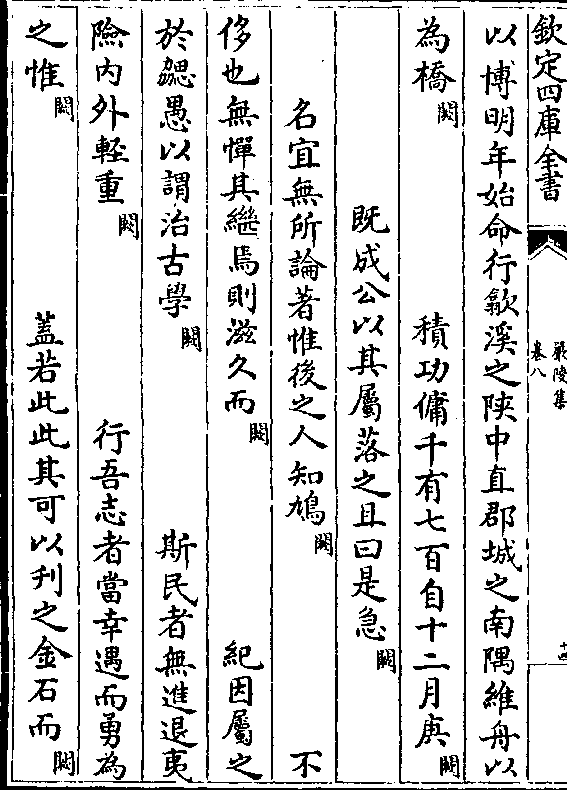 欽定四庫全書
嚴陵集
卷八
十四
以博明年始命行歙溪之陜中直郡城之南隅維舟以
為橋闕積功傭千有七百自十二月庚闕
既成公以其屬落之且曰是急闕
名宜無所論著惟後之人知鳩闕不
侈也無憚其繼焉則滋久而闕紀因屬之
於勰愚以謂治古學闕斯民者無進退夷
險內外輕重闕行吾志者當幸遇而勇為
之惟闕蓋若此此其可以刋之金石而闕